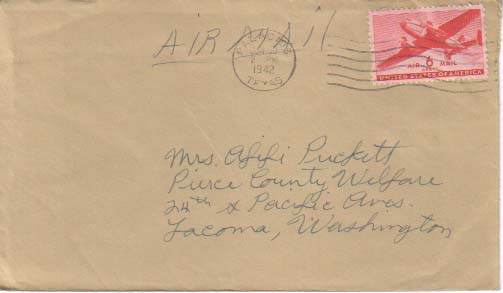 AIR MAIL
1942
TEXAS
AIR 6 MAIL
CENTS
UNITED STATES OF AMERICA
Mrs. Afifi Puckett
Pierce County Welfare
24th & Pacific Aves.
Tacoma, Washington